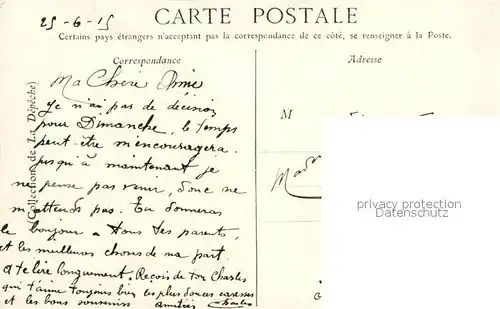 25-6-15
CARTE POSTALE
Certains pays étrangers n'acceptant pas la correspondance de ce côté, se renseigner à la Poste.
Correspondance
Adresse
Collection de La Dépêche)
Ma Chère Amie
Je n'ai pas de décision
pour Dimanche, le temps
peut-être m'encouragera.
jusqu'à maintenant je
ne pense pas venir, donc ne
m'attends pas. Tu donneras
le bonjour à tous tes parents,
et les meilleures choses de ma part.
A te lire longuement. Reçois de ton Charles
qui t'aime toujours bien les plus douces caresses
et les bons souvenirs amitiés Charles
M
privacy protection
Datenschutz